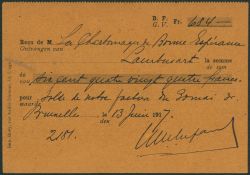 B. P.
G. V. Fr. 684 —
Reçu de M. La Charbonnages de Bonne Espérance
Ontvangen van
Lambusart la somme
de som
de six cent quatre vingt quatre francs
van
pour solde de notre facture du
voor
Bruxelles, le 13 Juin 1917
den
2181.